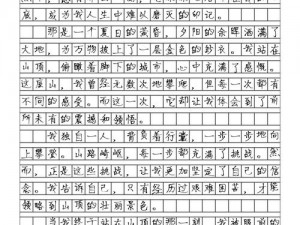 底，成为我人生中难以磨灭的印记。
那是一个夏日的黄昏，夕阳的余晖洒满了
大地，为万物披上了一层金色的纱衣。我站在
山顶，俯瞰着脚下的城市，心中充满了感慨。
这座山，我曾经无数次地攀爬，但每一次都有
不同的感受。而这一次，它却让我体会到了前
所未有的震撼和领悟。
我独自一人，背负着行囊，一步一步地向
上攀登。山路崎岖，每一步都充满了挑战。然
而，正是这些挑战，让我更加坚定了自己的信
念。我告诉自己，只有经历过艰难困苦，才能
领略到山顶的壮丽景色。
当我终于站在山顶的那一刻，我被眼前